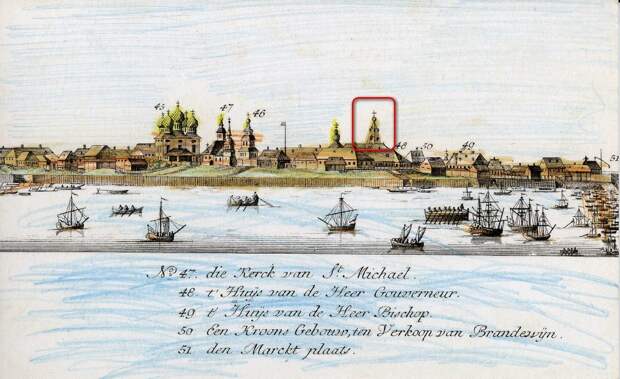 45
47
46
48
50
49
51
No 47. die Kerck van St. Michael.
48. t' Huijs van de Heer Gouverneur.
49 t' Huijs van de Heer Bischop.
50 Een Kroons Gebouw, ten Verkoop van Brandewijn.
51 den Marckt plaats.